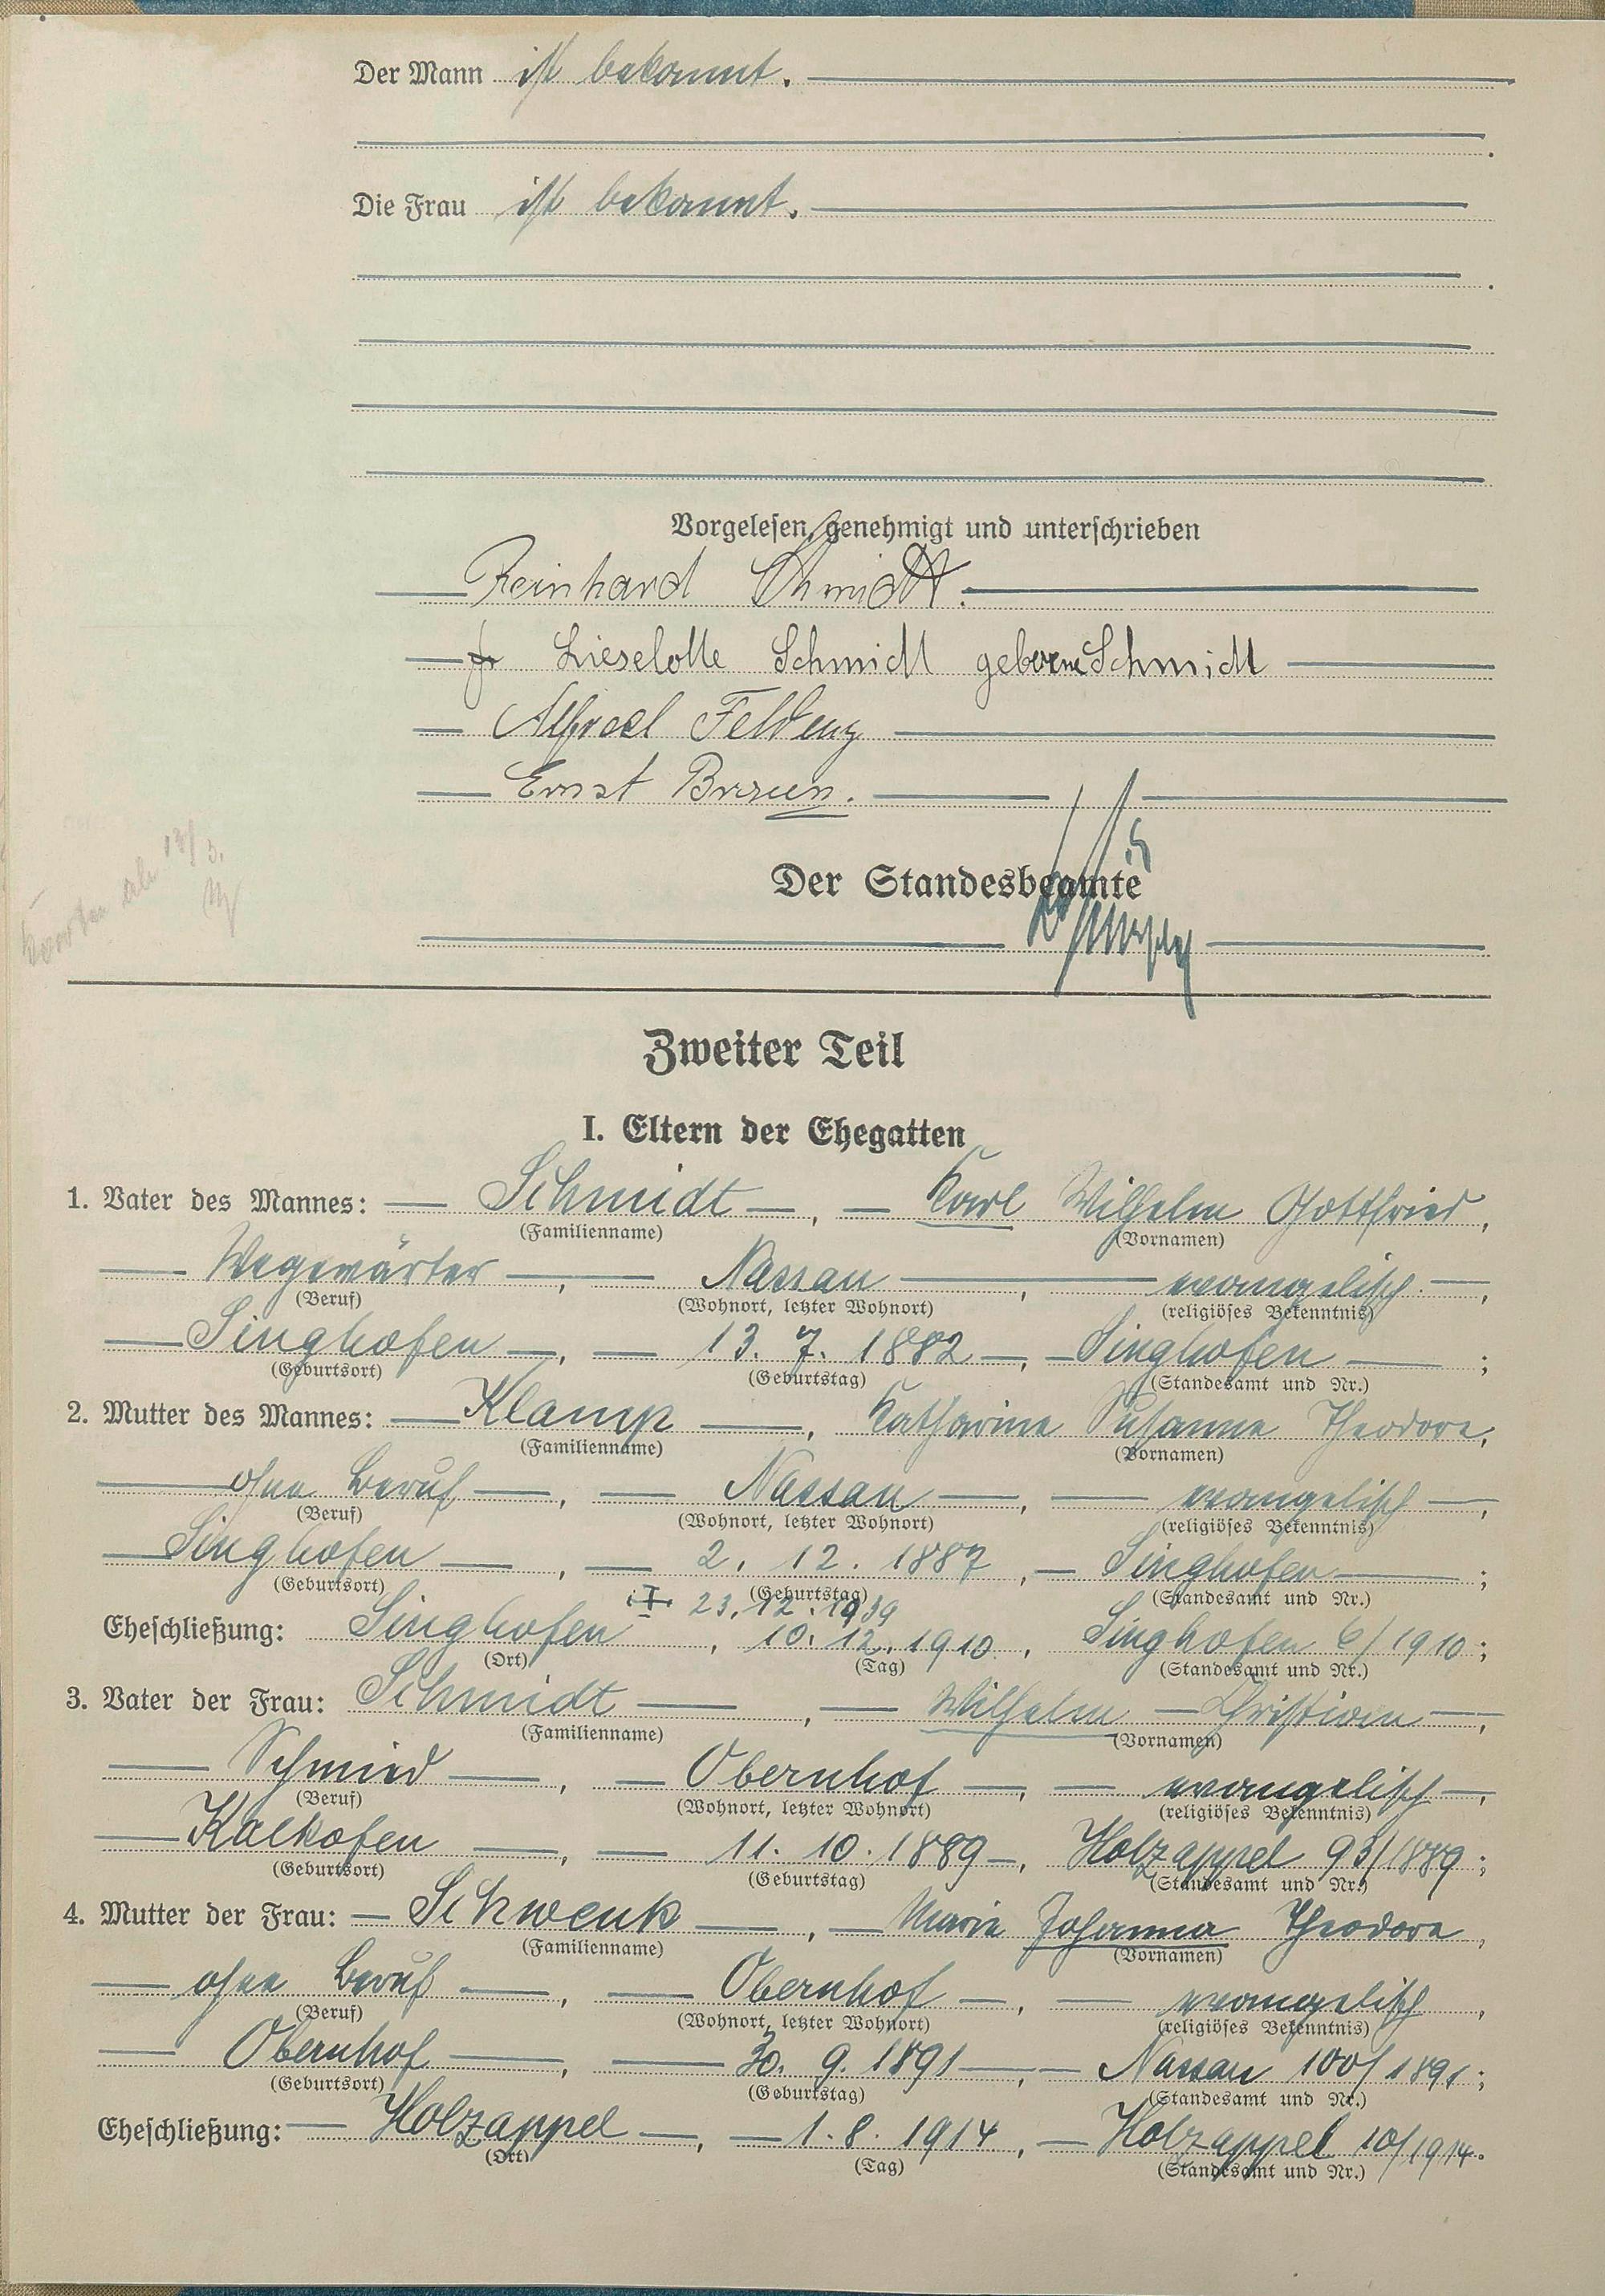 Der Mann ist bekannt.
Die Frau ist bekannt.
Vorgelesen, genehmigt und unterschrieben
Reinhard Schmidt.
Lieselotte Schmidt geborne Schmidt
Alfred
Ernst Braun.
Der Standesbeamte
Zweiter Teil
I. Eltern der Ehegatten
1. Vater des Mannes: Schmidt, Karl Wilhelm Gottfried,
(Familienname) (Vornamen)
Wegewärter, Nassau, evangelisch,
(Beruf) (Wohnort, letzter Wohnort) (religiöses Bekenntnis)
Singhofen, 13. 7. 1882, Singhofen;
(Geburtsort) (Geburtstag) (Standesamt und Nr.)
2. Mutter des Mannes: Klamp, Katharine Susanne Theodore,
(Familienname) (Vornamen)
ohne Beruf, Nassau, evangelisch,
(Beruf) (Wohnort, letzter Wohnort) (religiöses Bekenntnis)
Singhofen, 2. 12. 1887, Singhofen;
(Geburtsort) (Geburtstag) (Standesamt und Nr.)
23. 12. 1939
Eheschließung: Singhofen, 10. 12. 1910, Singhofen 6/1910;
(Ort) (Tag) (Standesamt und Nr.)
3. Vater der Frau: Schmidt, Wilhelm Christian,
(Familienname) (Vornamen)
Schmied, Obernhof, evangelisch,
(Beruf) (Wohnort, letzter Wohnort) (religiöses Bekenntnis)
Kalkofen, 11. 10. 1889, Holzappel 93/1889;
(Geburtsort) (Geburtstag) (Standesamt und Nr.)
4. Mutter der Frau: Schwenk, Marie Johanna Theodore,
(Familienname) (Vornamen)
ohne Beruf, Obernhof, evangelisch,
(Beruf) (Wohnort, letzter Wohnort) (religiöses Bekenntnis)
Obernhof, 30. 9. 1891, Nassau 100/1891;
(Geburtsort) (Geburtstag) (Standesamt und Nr.)
Eheschließung: Holzappel, 1. 8. 1914, Holzappel 10/1914.
(Ort) (Tag) (Standesamt und Nr.)